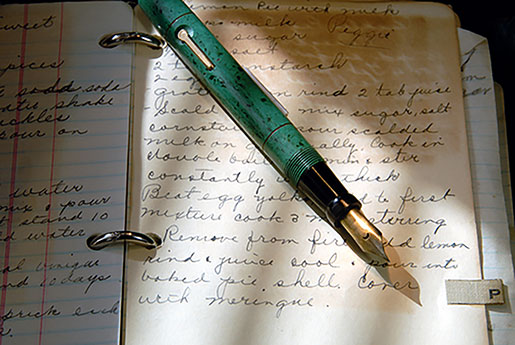 weet
pices
soda
shake
ckles
pour on
water
mix & pour
t stand 10
water
unique
10 days
prick each
emon Pie with milk
milk Peggie
sugar
salt
2 starch
2 e
grat rind 2 tab juice
Scald mix sugar, salt
cornsta pour scalded
milk on ally. Cook in
double boi min & stir
constantly thick
Beat egg yolk d to first
mixture cook 3 m stirring
Remove from fire d lemon
rind & juice cool & pour into
baked pie shell. Cover
with meringue.
P